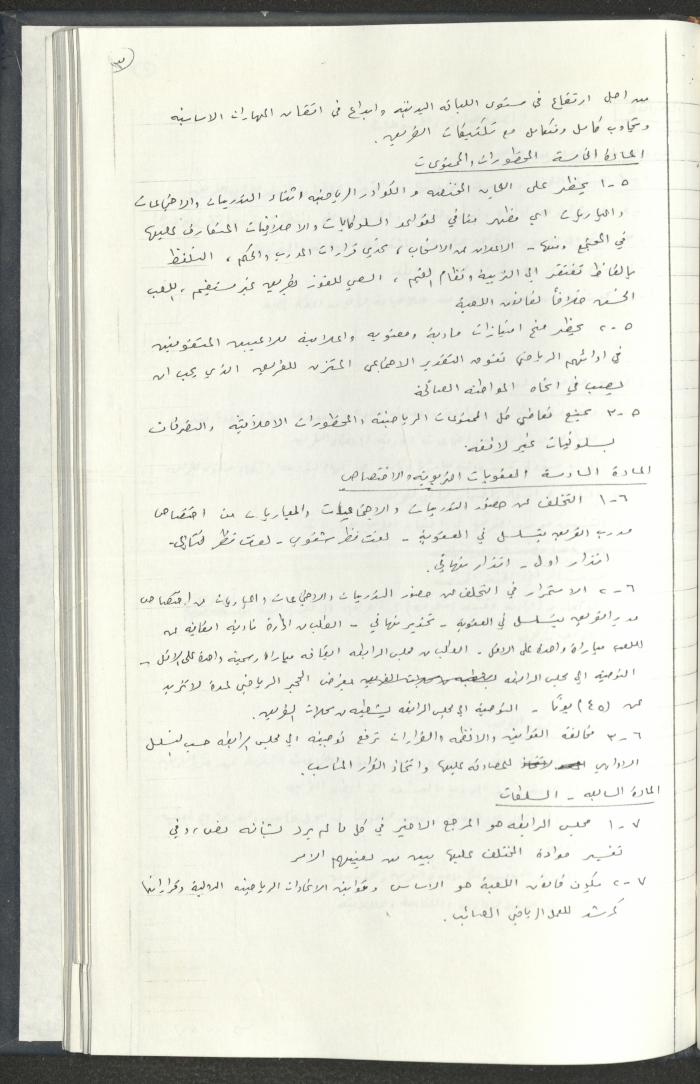 ٣
من اجل ارتفاع في مستوى اللياقة البدنية وابداع في اتقان المهارات الاساسية
وتجاوب كامل ومتكامل مع تكتيكات الفريق.
المادة الخامسة المحظورات والممنوعات
٥-١ يحظر على اللجان المختصة والكوادر الرياضية اثناء التدريبات والاجتماعات
والمباريات اي مظهر منافي لقواعد السلوكيات والاخلاقيات المتعارف عليها
في المجتمع ومنها - الاعلان عن الانسحاب، تحدي قرارات المدرب والحكم، التلفظ
بالفاظ تفتقر الى التربية ونظام القيم، السعي للفوز بطريق غير مستقيم، اللعب
الخشن خلافاً لقانون اللعبة
٥-٢ يحظر منح امتيازات مادية ومعنوية واعلامية للاعبين المتفوقين
في ادائهم الرياضي تفوق التقدير الاجتماعي المتزن للفريق الذي يجب ان
يصب في اتجاه المواطنة الصالحة
٥-٣ يمنع تعاطي كل الممنوعات الرياضية والمحظورات الاخلاقية والتصرفات
بسلوكيات غير لائقة.
المادة السادسة العقوبات التربوية والاختصاص
٦-١ التخلف عن حضور التدريبات والاجتماعات والمباريات من اختصاص
مدرب الفريق بتسلسل في العقوبة - لفت نظر شفوي - لفت نظر كتابي -
انذار اول - انذار نهائي.
٦-٢ الاستمرار في التخلف عن حضور التدريبات والاجتماعات والمباريات من اختصاص
مدير الفريق بتسلسل في العقوبة - تحذير نهائي - الطلب من ادارة ناديه ايقافه عن
اللعب مباراة واحدة على الاقل - الطلب من مجلس الرابطة ايقافه مباراة رسمية واحدة على الاقل -
التوصية الى مجلس الرابطة بفرض الحجر الرياضي لمدة لا تزيد
عن (٤٥) يوماً - التوصية الى مجلس الرابطة بشطبه من سجلات الفريق.
٦-٣ مخالفة القوانين والانظمة والقرارات ترفع توصية الى مجلس الرابطة حسب تسلسل
الاداري للمصادقة عليها واتخاذ القرار المناسب.
المادة السابعة -
٧-١ مجلس الرابطة هو المرجع الاخير في كل ما لم يرد بشأنه نص، وفي
تفسير موادة المختلف عليها بين من يعنيهم الامر
٧-٢ يكون قانون اللعبة هو الاساس وقوانين الاتحادات الرياضية الدولية وقراراتها
كمرشد للعمل الرياضي الصائب.